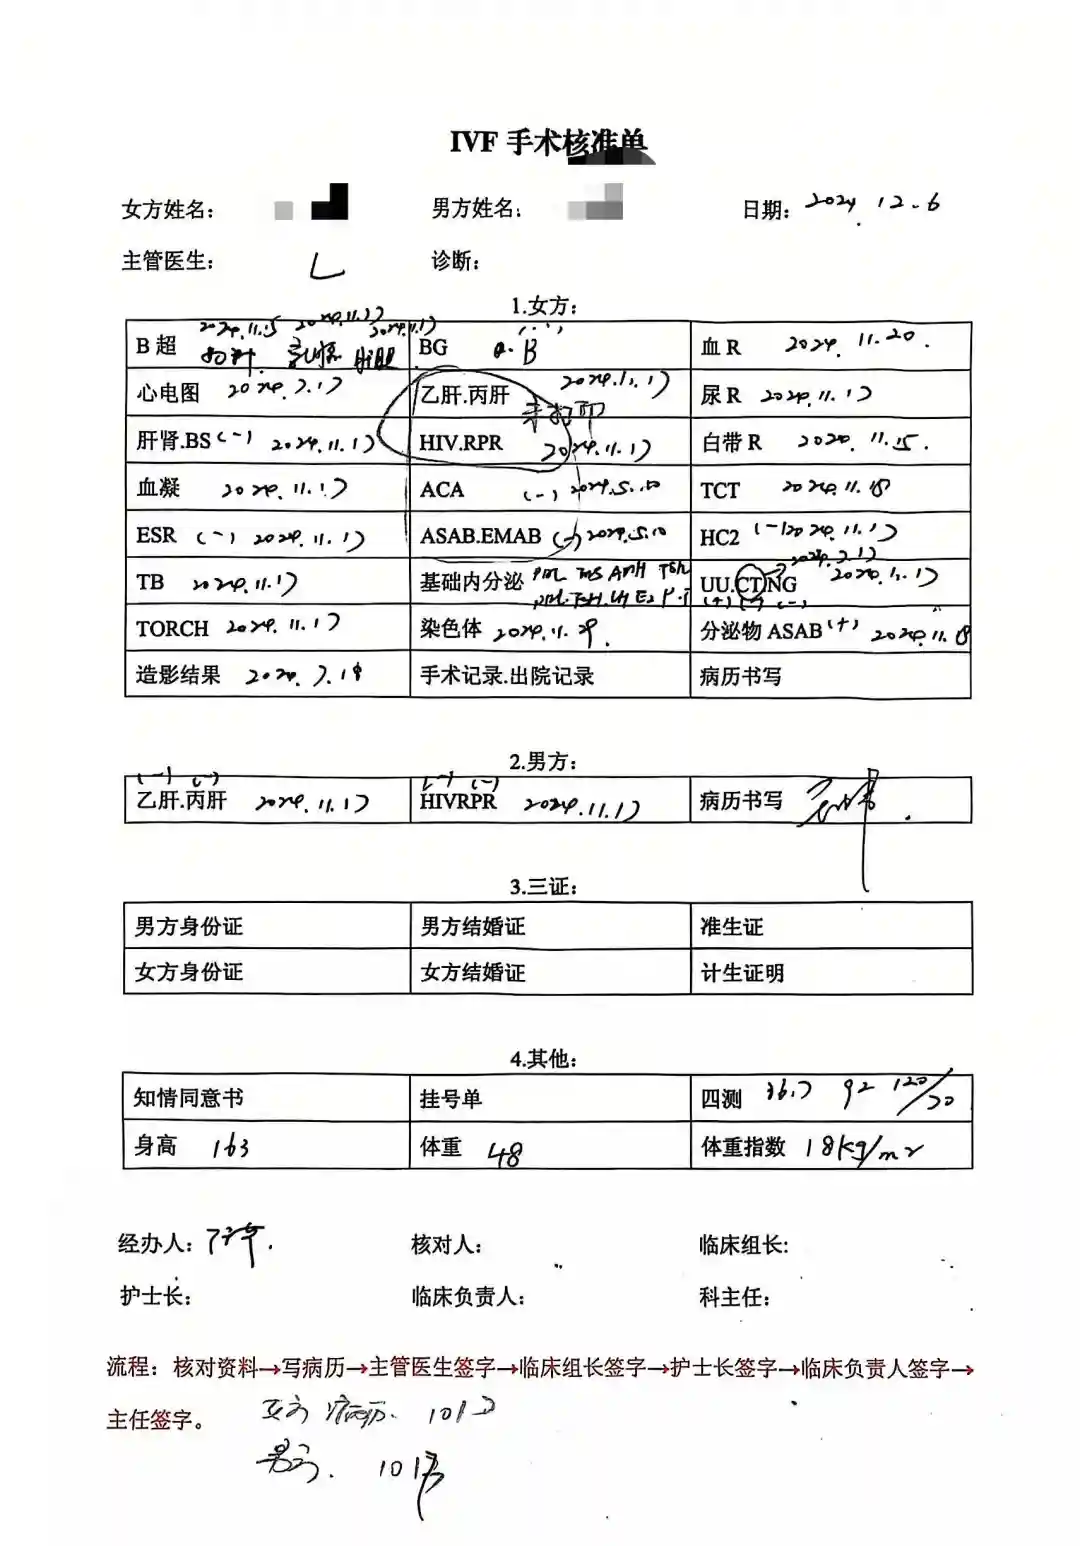 IVF 手术核准单
女方姓名： 男方姓名： 日期：2024.12.6
主管医生： 诊断：
1.女方：
B 超 2024.11.15 2024.11.17 2024.11.17 BG
血R 2024.11.20
心电图 2024.7.17 乙肝.丙肝 2024.11.17 未打印 尿R 2024.11.17
肝肾.BS (-) 2024.11.17 HIV.RPR 2024.11.17 白带R 2024.11.15.
血凝 2024.11.17 ACA (-) 2024.5.10 TCT 2024.11.18
ESR (-) 2024.11.17 ASAB.EMAB (-) 2024.5.10 HC2 (-) 2024.11.17
TB 2024.11.17 基础内分泌 AMH TSH UU.CT.NG 2024.11.17
TORCH 2024.11.17 染色体 2024.11.29. 分泌物 ASAB (+) 2024.11.18
造影结果 2024.7.18 手术记录.出院记录 病历书写
2.男方：
(-) (-) (-) (-)
乙肝.丙肝 2024.11.17 HIVRPR 2024.11.17 病历书写
3.三证：
男方身份证 男方结婚证 准生证
女方身份证 女方结婚证 计生证明
4.其他：
知情同意书 挂号单 四测 36.7 92 120/70
身高 163 体重 48 体重指数 18kg/m2
经办人： 核对人： 临床组长:
护士长： 临床负责人： 科主任：
流程：核对资料→写病历→主管医生签字→临床组长签字→护士长签字→临床负责人签字→
主任签字。
女方 病历.
男方.